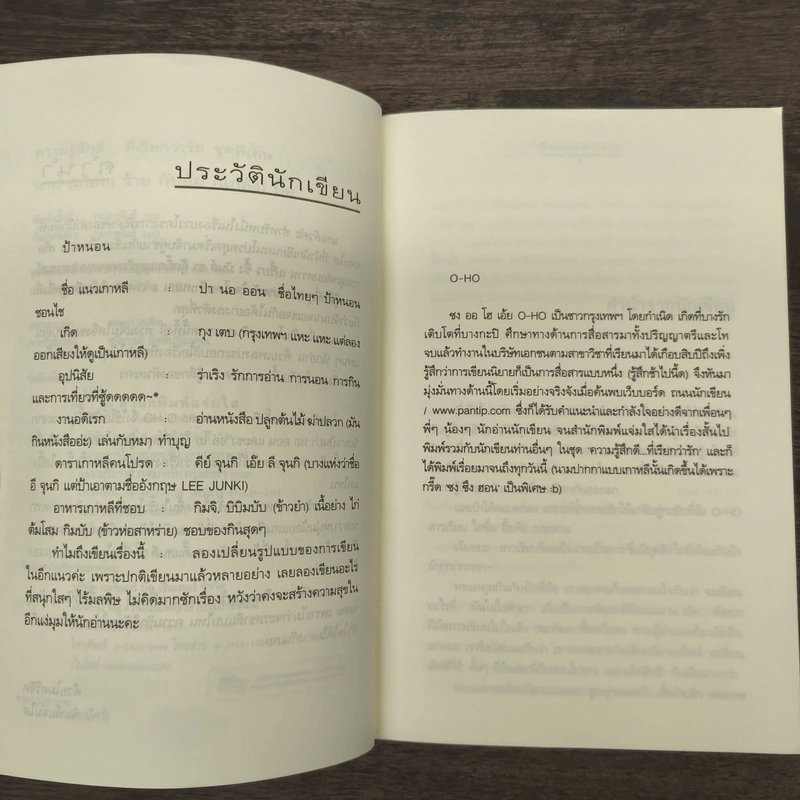 ประวัตินักเขียน
ป้าหนอน
ชื่อ แนวเกาหลี : ปา นอ ออน ชื่อไทยๆ ป้าหนอน
ชอนไช
เกิด : กุง เตบ (กรุงเทพฯ แหะ แหะ แต่ลอง
ออกเสียงให้ดูเป็นเกาหลี)
อุปนิสัย : ร่าเริง รักการอ่าน การนอน การกิน
และการเที่ยวที่ซู้ดดดดด~*
งานอดิเรก : อ่านหนังสือ ปลูกต้นไม้ ฆ่าปลวก (มัน
กินหนังสืออ่ะ) เล่นกับหมา ทำบุญ
ดาราเกาหลีคนโปรด : คีย์ จุนกิ เอ๊ย ลี จุนกิ (บางแห่งว่าชื่อ
อี จุนกิ แต่ป้าเอาตามชื่ออังกฤษ LEE JUNKI)
อาหารเกาหลีที่ชอบ : กิมจิ, บิบิมบับ (ข้าวยำ) เนื้อย่าง ไก่
ต้มโสม กิมบับ (ข้าวห่อสาหร่าย) ชอบของกินสุดๆ
ทำไมถึงเขียนเรื่องนี้ : ลองเปลี่ยนรูปแบบของการเขียน
ในอีกแนวค่ะ เพราะปกติเขียนมาแล้วหลายอย่าง เลยลองเขียนอะไร
ที่สนุกใสๆ ไร้มลพิษ ไม่คิดมากซักเรื่อง หวังว่าคงจะสร้างความสุขใน
อีกแง่มุมให้นักอ่านนะคะ
O-HO
ซง ออ โฮ เอ้ย O-HO เป็นชาวกรุงเทพฯ โดยกำเนิด เกิดที่บางรัก
เติบโตที่บางกะปิ ศึกษาทางด้านการสื่อสารมาทั้งปริญญาตรีและโท
จบแล้วทำงานในบริษัทเอกชนตามสาขาวิชาที่เรียนมาได้เกือบสิบปีถึงเพิ่ง
รู้สึกว่าการเขียนนิยายก็เป็นการสื่อสารแบบหนึ่ง (รู้สึกช้าไปนี้ด) จึงหันมา
มุ่งมั่นทางด้านนี้โดยเริ่มอย่างจริงจังเมื่อค้นพบเว็บบอร์ด ถนนนักเขียน
/ www.pantip.com ซึ่งก็ได้รับคำแนะนำและกำลังใจอย่างดีจากเพื่อนๆ
พี่ๆ น้องๆ นักอ่านนักเขียน จนสำนักพิมพ์แจ่มใสได้นำเรื่องสั้นไป
พิมพ์รวมกับนักเขียนท่านอื่นๆ ในชุด 'ความรู้สึกดี...ที่เรียกว่ารัก' และก็
ได้พิมพ์เรื่อยมาจนถึงทุกวันนี้ (นามปากกาแบบเกาหลีนั้นเกิดขึ้นได้เพราะ
กรี๊ด 'ซง ซึง ฮอน' เป็นพิเศษ :b)